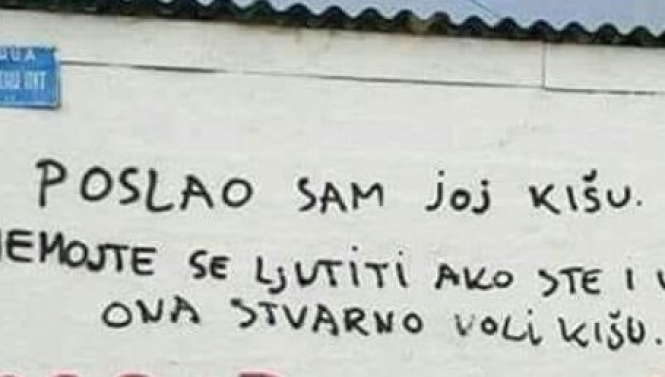 POSLAO SAM joj KIŠU.
NEMOJTE SE LJUTITI AKO STE I
ONA STVARNO VOLI KIŠU.